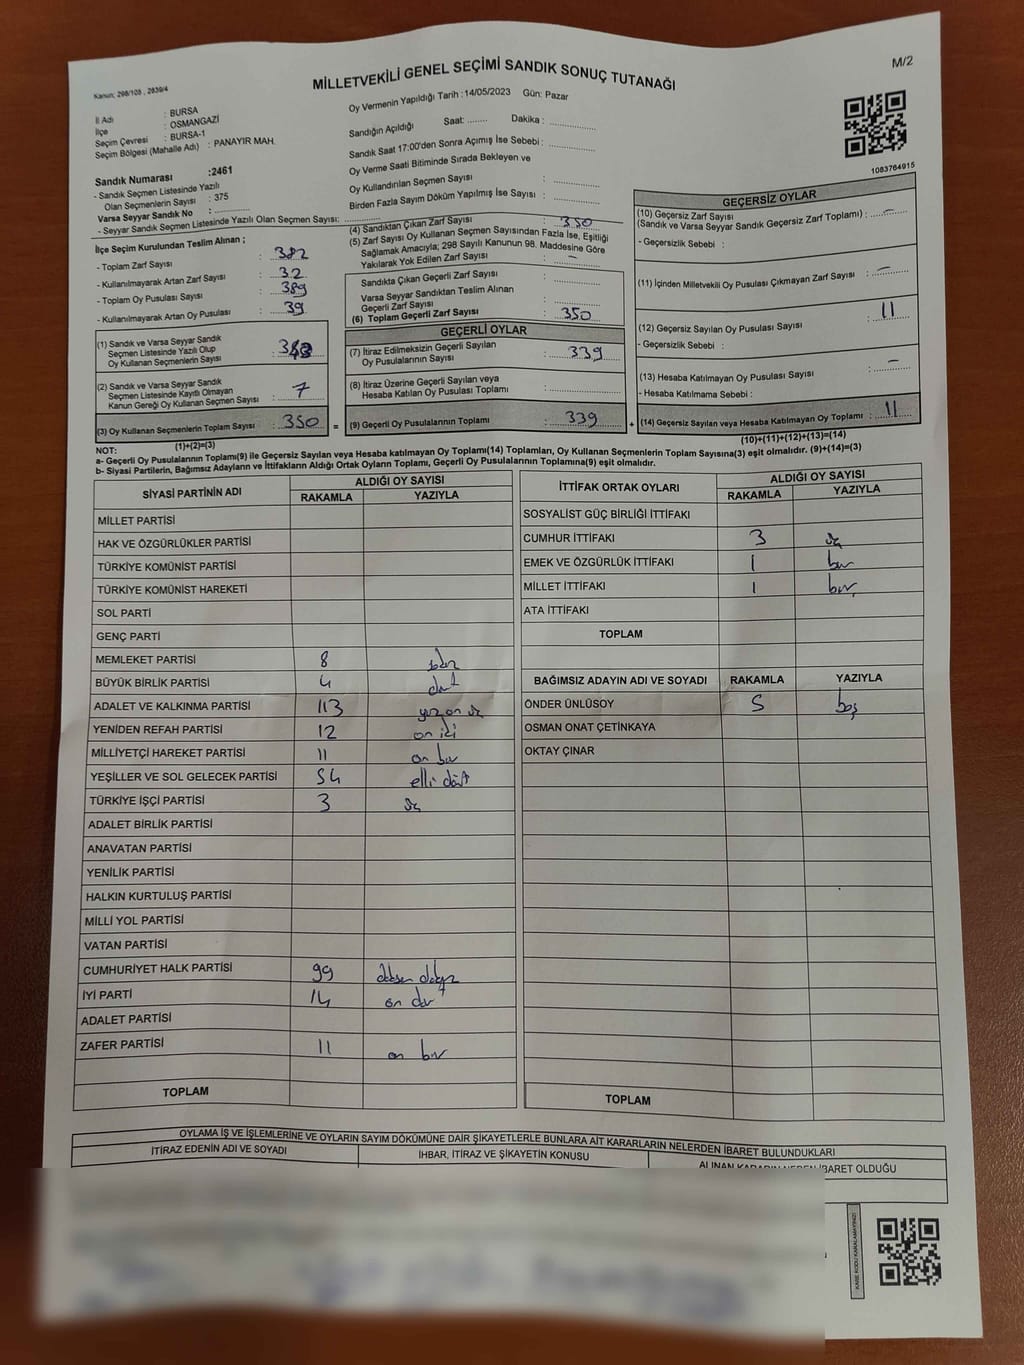 Kanun; 298/105 , 2839/4
M/2
MİLLETVEKİLİ GENEL SEÇİMİ SANDIK SONUÇ TUTANAĞI
İl Adı : BURSA
İlçe : OSMANGAZİ
Seçim Çevresi : BURSA-1
Seçim Bölgesi (Mahalle Adı) : PANAYIR MAH.
Sandık Numarası :2461
- Sandık Seçmen Listesinde Yazılı
Olan Seçmenlerin Sayısı : 375
Varsa Seyyar Sandık No : ..............
- Seyyar Sandık Seçmen Listesinde Yazılı Olan Seçmen Sayısı: ..............
Oy Vermenin Yapıldığı Tarih :14/05/2023 Gün: Pazar
Sandığın Açıldığı Saat: ........ Dakika : ..............
Sandık Saat 17:00'den Sonra Açımış İse Sebebi : ..............
Oy Verme Saati Bitiminde Sırada Bekleyen ve
Oy Kullandırılan Seçmen Sayısı : ..............
Birden Fazla Sayım Döküm Yapılmış İse Sayısı : ..............
1083764915
İlçe Seçim Kurulundan Teslim Alınan ;
- Toplam Zarf Sayısı : 382
- Kullanılmayarak Artan Zarf Sayısı : 32
- Toplam Oy Pusulası Sayısı : 389
- Kullanılmayarak Artan Oy Pusulası : 39
(1) Sandık ve Varsa Seyyar Sandık
Seçmen Listesinde Yazılı Olup
Oy Kullanan Seçmenlerin Sayısı :
(2) Sandık ve Varsa Seyyar Sandık
Seçmen Listesinde Kayıtlı Olmayan
Kanun Gereği Oy Kullanan Seçmen Sayısı : 7
(3) Oy Kullanan Seçmenlerin Toplam Sayısı : 350 =
(1)+(2)=(3)
(4) Sandıktan Çıkan Zarf Sayısı : 350
(5) Zarf Sayısı Oy Kullanan Seçmen Sayısından Fazla İse, Eşitliği
Sağlamak Amacıyla; 298 Sayılı Kanunun 98. Maddesine Göre
Yakılarak Yok Edilen Zarf Sayısı : –
Sandıkta Çıkan Geçerli Zarf Sayısı : ..............
Varsa Seyyar Sandıktan Teslim Alınan
Geçerli Zarf Sayısı : ..............
(6) Toplam Geçerli Zarf Sayısı : 350
GEÇERLİ OYLAR
(7) İtiraz Edilmeksizin Geçerli Sayılan
Oy Pusulalarının Sayısı : 339
(8) İtiraz Üzerine Geçerli Sayılan veya
Hesaba Katılan Oy Pusulası Toplamı : ..............
(9) Geçerli Oy Pusulalarının Toplamı : 339 +
GEÇERSİZ OYLAR
(10) Geçersiz Zarf Sayısı
(Sandık ve Varsa Seyyar Sandık Geçersiz Zarf Toplamı) : –
- Geçersizlik Sebebi :
(11) İçinden Milletvekili Oy Pusulası Çıkmayan Zarf Sayısı : –
(12) Geçersiz Sayılan Oy Pusulası Sayısı : 11
- Geçersizlik Sebebi :
(13) Hesaba Katılmayan Oy Pusulası Sayısı : –
- Hesaba Katılmama Sebebi :
(14) Geçersiz Sayılan veya Hesaba Katılmayan Oy Toplamı : 11
(10)+(11)+(12)+(13)=(14)
NOT:
a- Geçerli Oy Pusulalarının Toplamı(9) ile Geçersiz Sayılan veya Hesaba katılmayan Oy Toplamı(14) Toplamları, Oy Kullanan Seçmenlerin Toplam Sayısına(3) eşit olmalıdır. (9)+(14)=(3)
b- Siyasi Partilerin, Bağımsız Adayların ve İttifakların Aldığı Ortak Oyların Toplamı, Geçerli Oy Pusulalarının Toplamına(9) eşit olmalıdır.
SİYASİ PARTİNİN ADI ALDIĞI OY SAYISI
RAKAMLA YAZIYLA
MİLLET PARTİSİ
HAK VE ÖZGÜRLÜKLER PARTİSİ
TÜRKİYE KOMÜNİST PARTİSİ
TÜRKİYE KOMÜNİST HAREKETİ
SOL PARTİ
GENÇ PARTİ
MEMLEKET PARTİSİ 8 sekiz
BÜYÜK BİRLİK PARTİSİ 4 dört
ADALET VE KALKINMA PARTİSİ 113 yüz on üç
YENİDEN REFAH PARTİSİ 12 on iki
MİLLİYETÇİ HAREKET PARTİSİ 11 on bir
YEŞİLLER VE SOL GELECEK PARTİSİ 54 elli dört
TÜRKİYE İŞÇİ PARTİSİ 3 üç
ADALET BİRLİK PARTİSİ
ANAVATAN PARTİSİ
YENİLİK PARTİSİ
HALKIN KURTULUŞ PARTİSİ
MİLLİ YOL PARTİSİ
VATAN PARTİSİ
CUMHURİYET HALK PARTİSİ 99 doksan dokuz
İYİ PARTİ 14 on dört
ADALET PARTİSİ
ZAFER PARTİSİ 11 on bir
TOPLAM
İTTİFAK ORTAK OYLARI ALDIĞI OY SAYISI
RAKAMLA YAZIYLA
SOSYALİST GÜÇ BİRLİĞİ İTTİFAKI
CUMHUR İTTİFAKI 3 üç
EMEK VE ÖZGÜRLÜK İTTİFAKI 1 bir
MİLLET İTTİFAKI 1 bir
ATA İTTİFAKI
TOPLAM
BAĞIMSIZ ADAYIN ADI VE SOYADI RAKAMLA YAZIYLA
ÖNDER ÜNLÜSOY 5 beş
OSMAN ONAT ÇETİNKAYA
OKTAY ÇINAR
TOPLAM
OYLAMA İŞ VE İŞLEMLERİNE VE OYLARIN SAYIM DÖKÜMÜNE DAİR ŞİKAYETLERLE BUNLARA AİT KARARLARIN NELERDEN İBARET BULUNDUKLARI
İTİRAZ EDENİN ADI VE SOYADI İHBAR, İTİRAZ VE ŞİKAYETİN KONUSU ALINAN KARARIN NEDEN İBARET OLDUĞU
KARE KODU KARALAMAYINIZ!